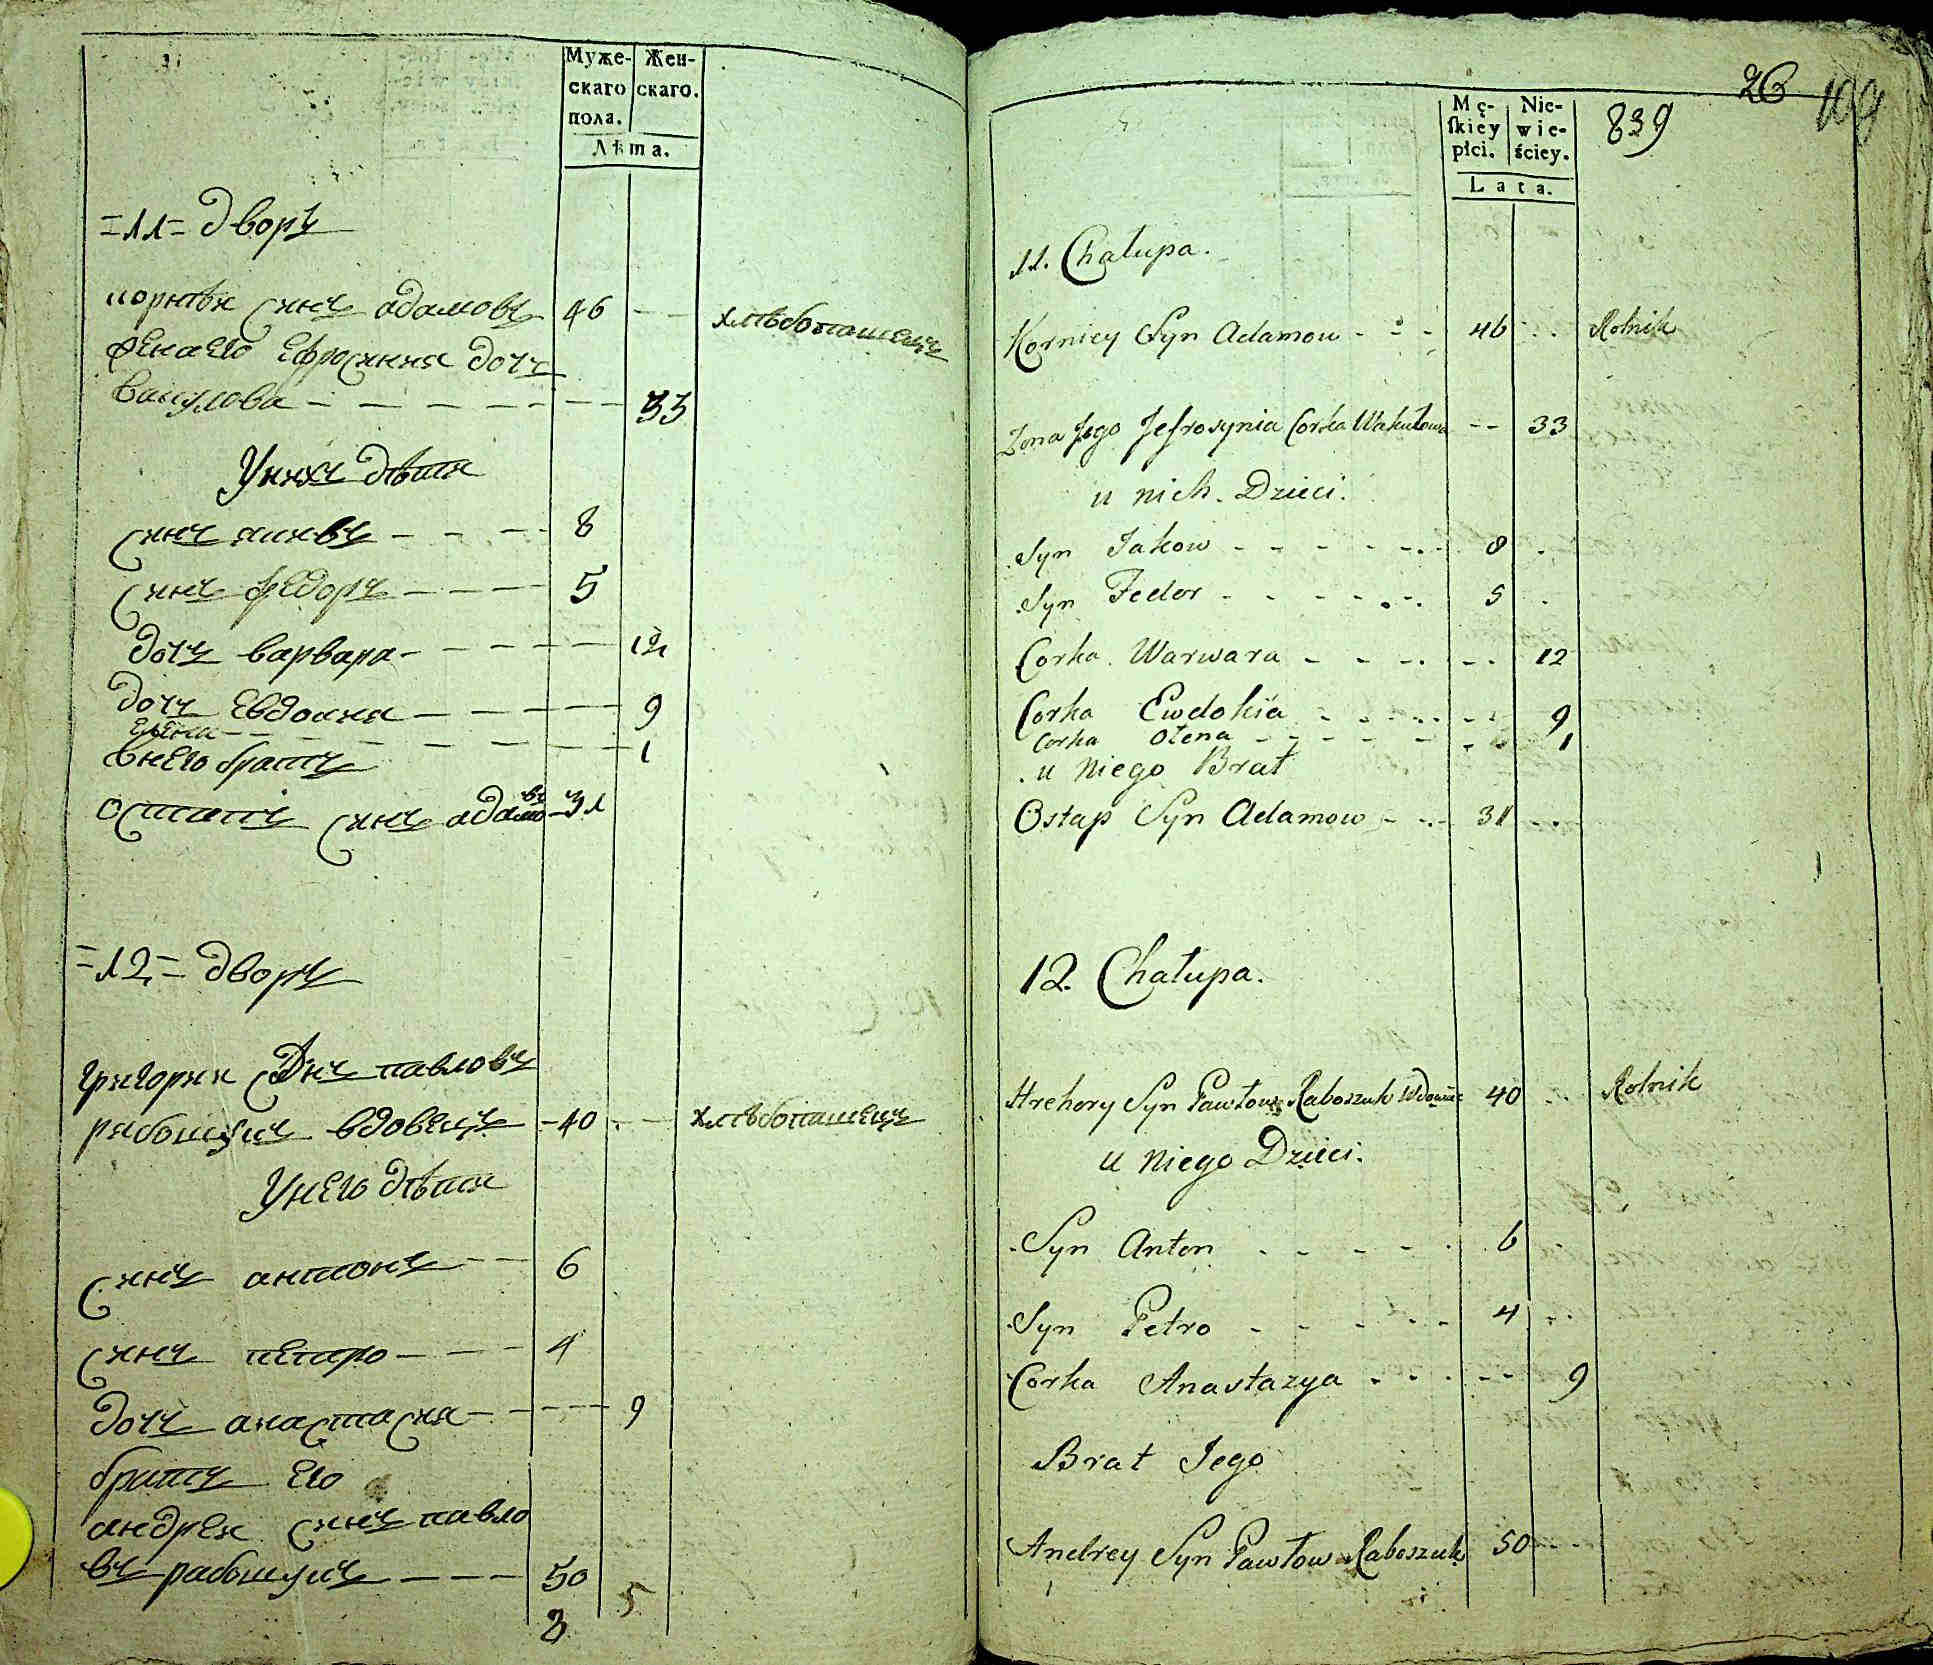 Муже-
скаго
пола.
Жен-
скаго.
Лѣта.
=11= Дворъ
корнѣи синъ адамовъ 46 — —
хлѣбопашецъ
жена его ефросиния дочъ
вакулова — — — — — — 33
У нихъ дѣти
синъ яковъ — — — — 8
синъ федоръ — — — — 5
дочъ варвара — — — — — 12
дочъ евдокия — — — — 9
елена — — — — — — — 1
в него братъ
остапъ синъ адамовъ — 31
=12= дворъ
григории синъ павловъ
рабошукъ вдовецъ — 40 — —
хлѣбопашецъ
У него дѣти
синъ антонъ — — 6
синъ петро — — — 4
дочъ анастасия — — — — 9
братъ его
андреи синъ павло
въ рабошукъ — — — — 50
8 5
26 109
Mę-
ſkiey
płci.
Nie-
wie-
ściey.
Lata.
839
11. Chałupa.
Korniey Syn Adamow - - - 46 . . Rolnik
Żona Jego Jefrosynia Corka Wakułowa - - 33
u nich. Dzieci.
Syn Jakow - - - - - - 8 .
Syn Fedor - - - - - - 5 .
Corka Warwara - - - - - - 12
Corka Ewdokia - - - - - - 9
Corka Ołena - - - - - - - 1
u niego Brat
Ostap Syn Adamow - - - 31 . .
12. Chałupa.
Hrehory Syn Pawłow Raboszuk Wdowiec 40 . . Rolnik
u niego Dzieci.
Syn Anton - - - - - 6
Syn Petro - - - - - - 4 . .
Corka Anastazya - - - - - 9
Brat Jego
Andrey Syn Pawłow Raboszuk 50 - - -